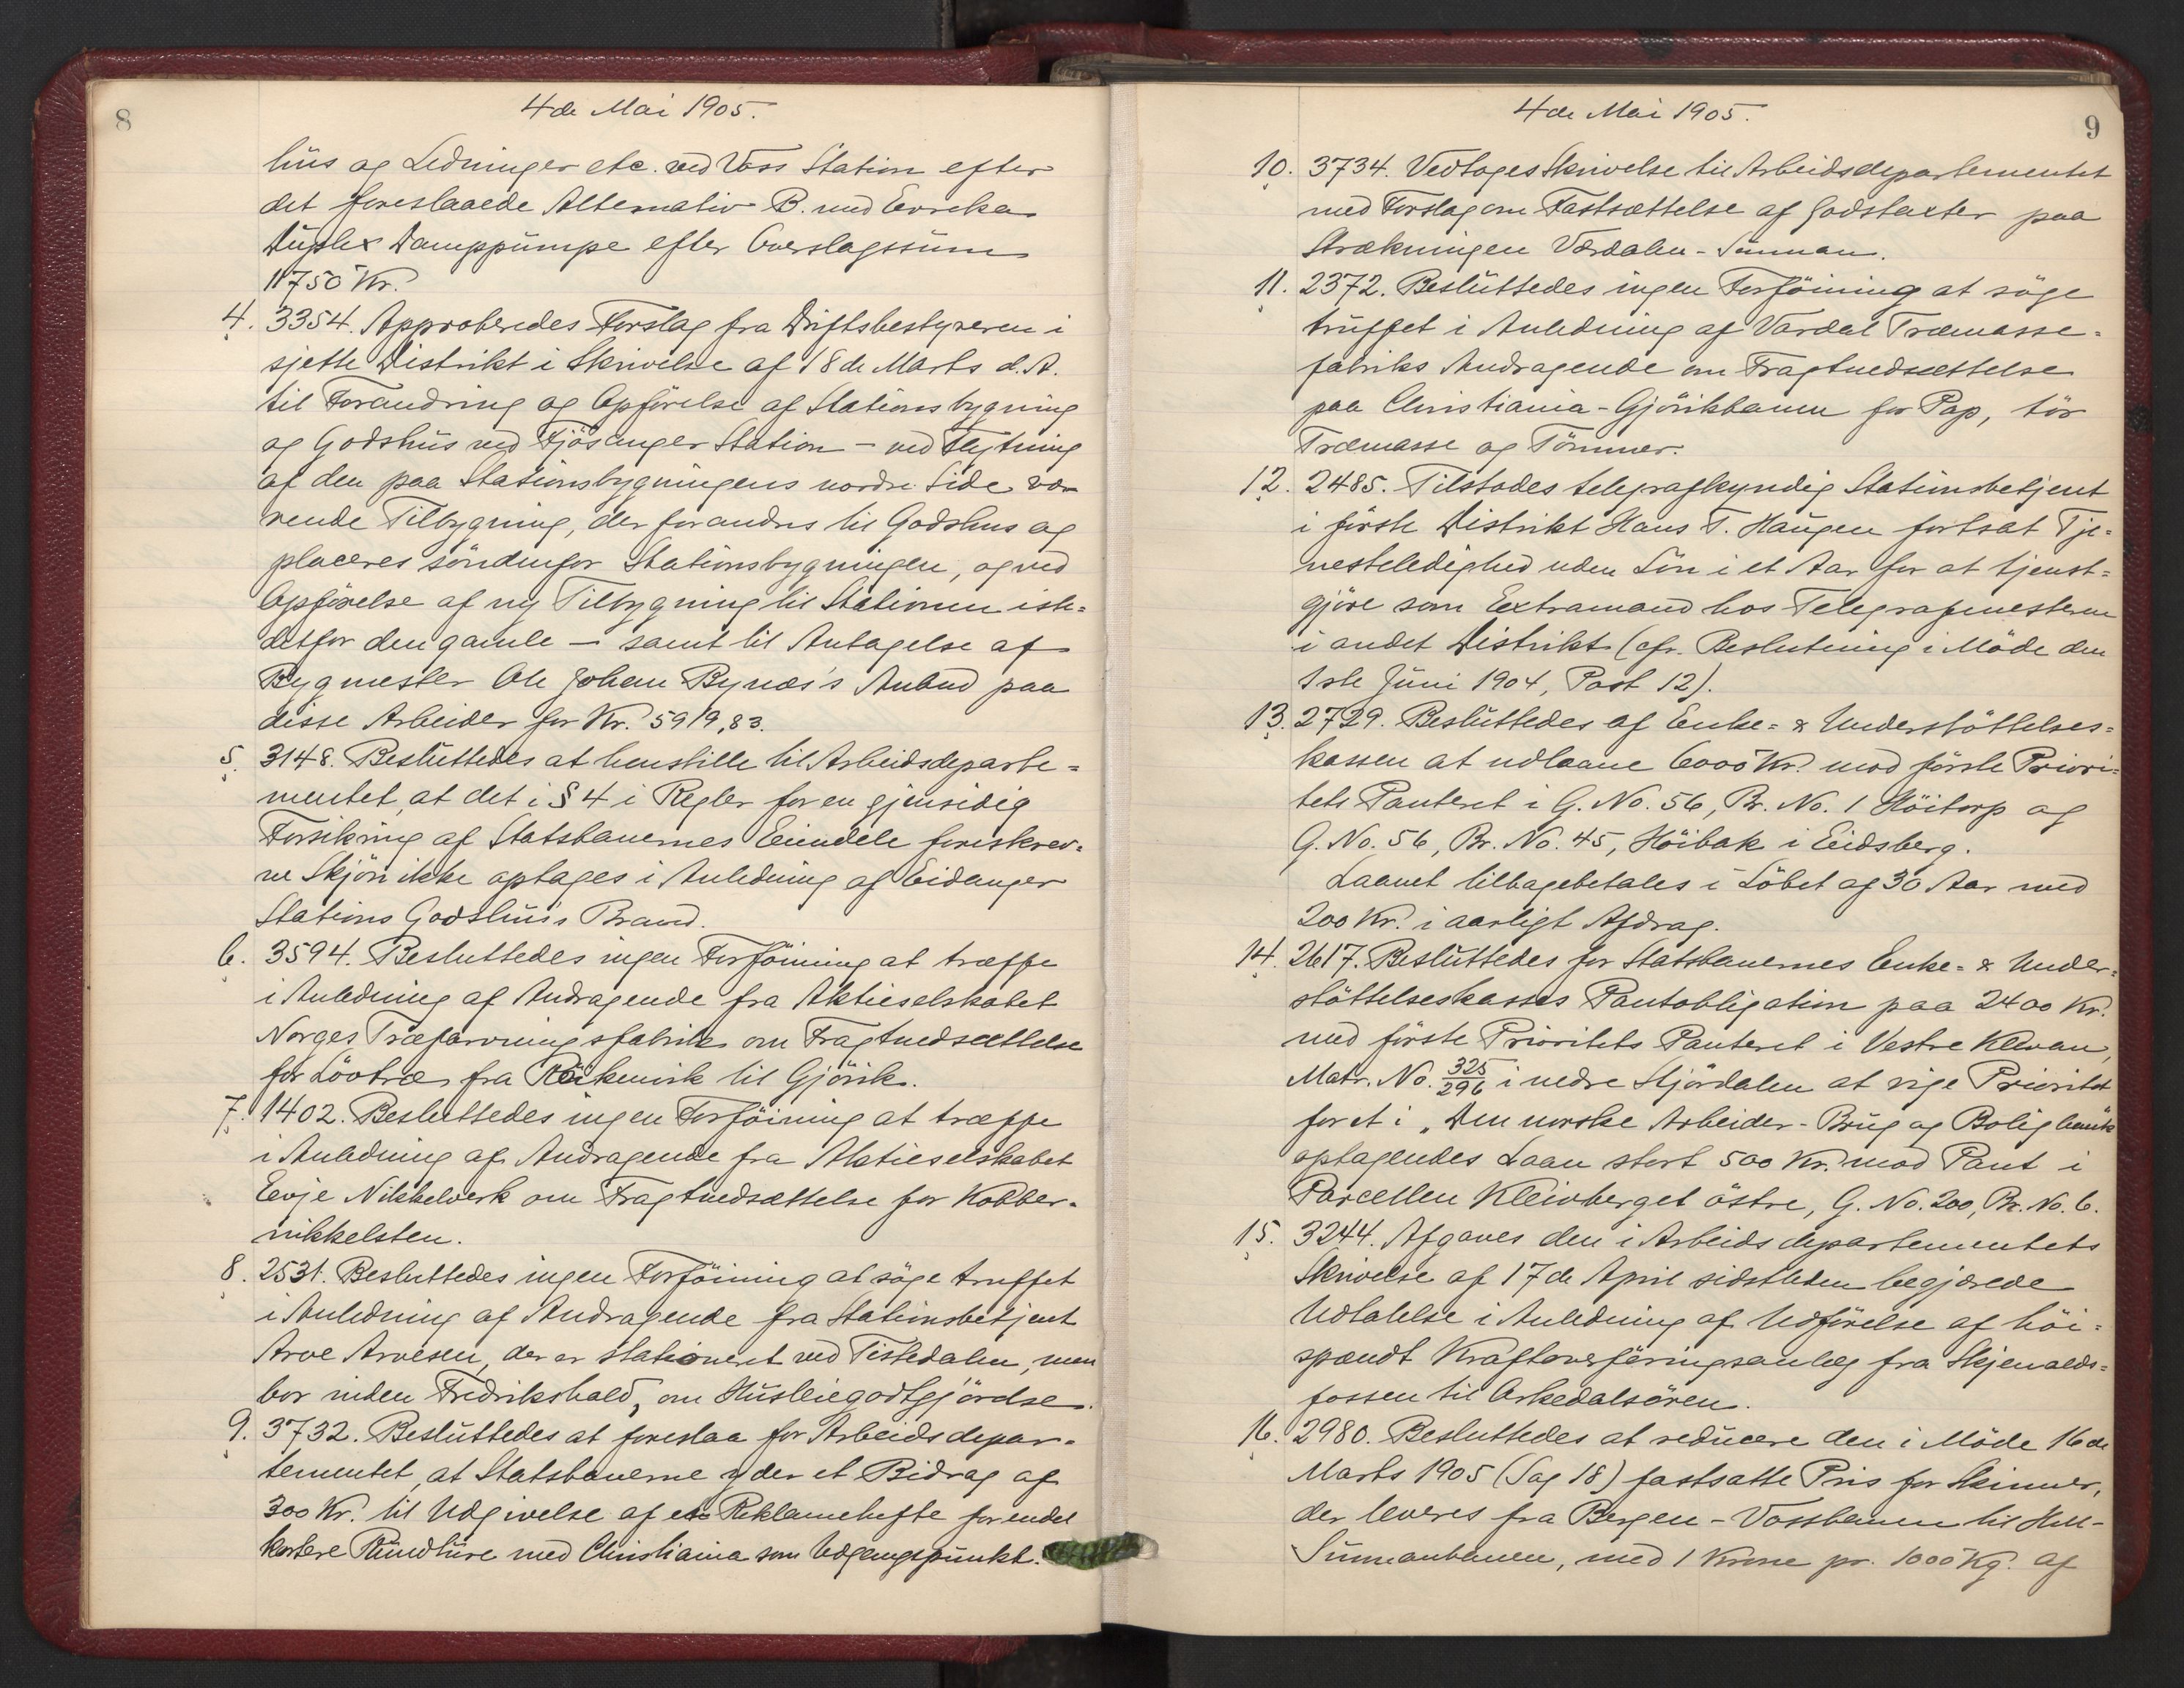 8
4de Mai 1905.
hus og Ledninger etc. ved Voss Station efter
det foreslaaede Alternativ B. med Evreka
Duplex Damppumpe efter Overslagssum
11750 Kr.
4. 3354. Approberedes Forslag fra Driftsbestyreren i
sjette Distrikt i Skrivelse af 18de Marts d. A.
til Forandring og Opførelse af Stationsbygning
og Godshus ved Fjösanger Station – ved Flytning
af den paa Stationsbygningens nordre Side væ-
rende Tilbygning, der forandres til Godshus og
placeres söndenfor Stationsbygningen, og ved
Opförelse af ny Tilbygning til Stationen iste=
detfor den gamle – samt til Antagelse af
Bygmester Ole Johan Bynæs's Anbud paa
disse Arbeider for Kr. 5919,83.
5. 3148. Besluttedes at henstille til Arbeidsdeparte=
mentet, at det i § 4 i Regler for en gjensidig
Forsikring af Statsbanernes Eiendele foreskrev=
ne Skjön ikke optages i Anledning af Eidanger
Stations Godshus's Brand.
6. 3594. Besluttedes ingen Forföining at træffe
i Anledning af Andragende fra Aktieselskabet
Norges Træfarvningsfabrik om Fragtnedsættelse
for Lövtræ fra Röikenvik til Gjövik.
7. 1402. Besluttedes ingen Forföining at træffe
i Anledning af Andragende fra Aktieselskabet
Evje Nikkelverk om Fragtnedsættelse for Kobber=
nikkelsten.
8. 2531. Besluttedes ingen Forföining at söge truffet
i Anledning af Andragende fra Stationsbetjent
Arve Arvesen, der er stationeret ved Tistedalen, men
bor inden Fredrikshald, om Husleiegodtgjörelse.
9. 3732. Besluttedes at foreslaa for Arbeidsdepar=
tementet, at Statsbanerne yder et Bidrag af
300 Kr. til Udgivelse af et Reklamehefte for endel
kortere Rundture med Christiania som Udgangspunkt.
9
4de Mai 1905.
10. 3734. Vedtoges Skrivelse til Arbeidsdepartementet
med Forslag om Fastsættelse af Godstaxter paa
Strækningen Værdalen - Sunnan.
11. 2372. Besluttedes ingen Forföining at söge
truffet i Anledning af Vardal Træmasse=
fabriks Andragende om Fragtnedsættelse
paa Christiania-Gjövikbanen for Pap, tör
Træmasse og Tömmer.
12. 2485. Tilstodes telegrafkyndig Stationsbetjent
i förste Distrikt Hans T. Haugen fortsat Tje=
nesteledighed uden Lön i et Aar for at tjenst=
gjöre som Extramand hos Telegrafmesteren
i andet Distrikt (cfr. Beslutning i Möde den
1ste Juni 1904, Post 12).
13. 2729. Besluttedes af Enke- & Understöttelses=
kassen at udlaane 6000 Kr. mod förste Priori=
tets Panteret i G. No. 56, Br. No. 1 Höitorp og
G. No. 56, Br. No. 45, Höibak i Eidsberg.
Laanet tilbagebetales i Löbet af 30 Aar med
200 Kr. i aarligt Afdrag.
14. 2617. Besluttedes for Statsbanernes Enke- & Under=
stöttelseskasses Pantobligation paa 2400 Kr.
med förste Prioritets Panteret i Vestre Klevan,
Matr. No. 325/296 i nedre Stjördalen at vige Prioritet
for et i „Den norske Arbeider-Brug og Boligbank
optagendes Laan stort 500 Kr. mod Pant i
Parcellen Kleivberget östre, G. No. 200, Br. No. 6.
15. 3244. Afgaves den i Arbeidsdepartementets
Skrivelse af 17de April sidstleden begjærede
Udtalelse i Anledning af Udförelse af höi=
spændt Kraftoverföringsanlæg fra Skjenalds=
fossen til Orkedalsören.
16. 2980. Besluttedes at reducere den i Möde 16de
Marts 1905 (Sag 18) fastsatte Pris for Skinner,
der leveres fra Bergen-Vossbanen til Hell-
Sunnanbanen, med 1 Krone pr. 1000 Kg. af